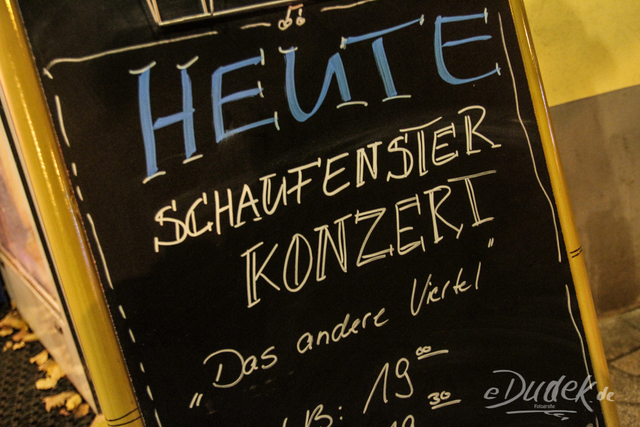 HEUTE
SCHAUFENSTER
KONZERT
„Das andere Viertel"
B: 19⁰⁰
³⁰
eDudek.de
Fotografie